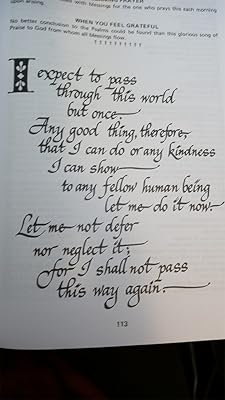 PRAYER
upon arising. with blessings for the one who prays this each morning
WHEN YOU FEEL GRATEFUL
No better conclusion to the Psalms could be found than this glorious song of
Praise to God from whom all Blessings flow.
I expect to pass
through this world
but once.
Any good thing, therefore,
that I can do or any kindness
I can show
to any fellow human being
let me do it now.
Let me not defer
nor neglect it;
for I shall not pass
this way again.
113